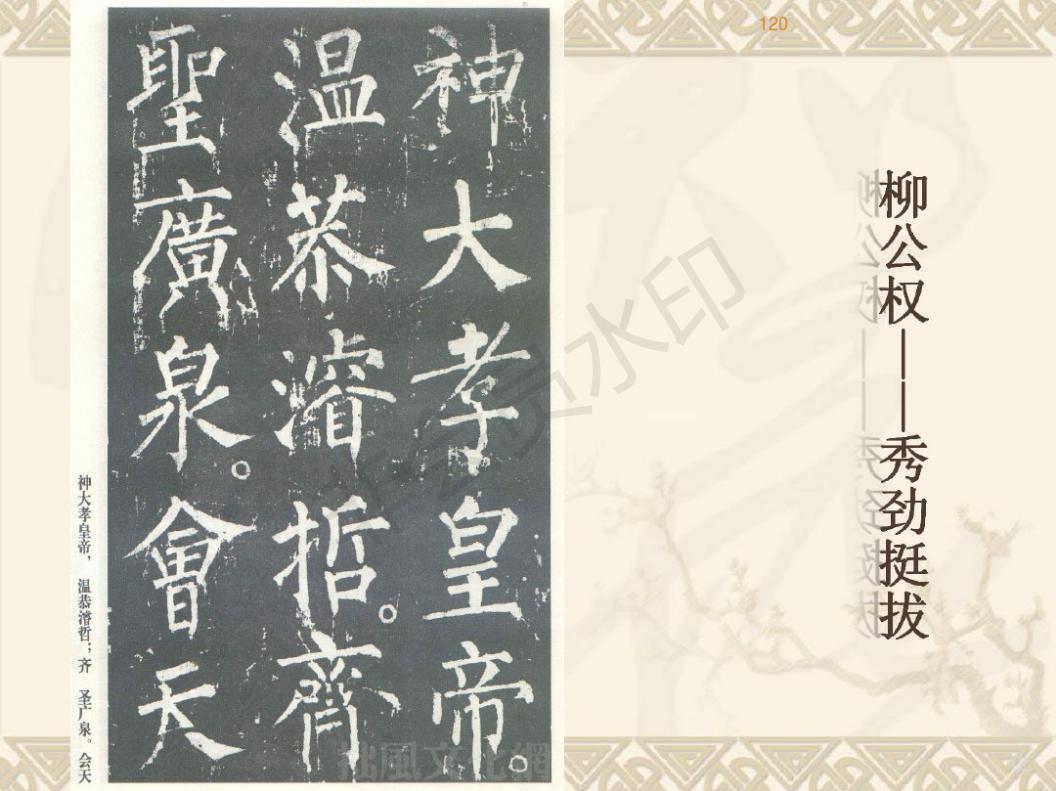 120
神大孝皇帝。
温恭濬哲。齊
聖廣泉。會天
神大孝皇帝，　温恭濬哲；齐　圣广泉。会天
柳公权——秀劲挺拔
非会员水印
拙風文化網